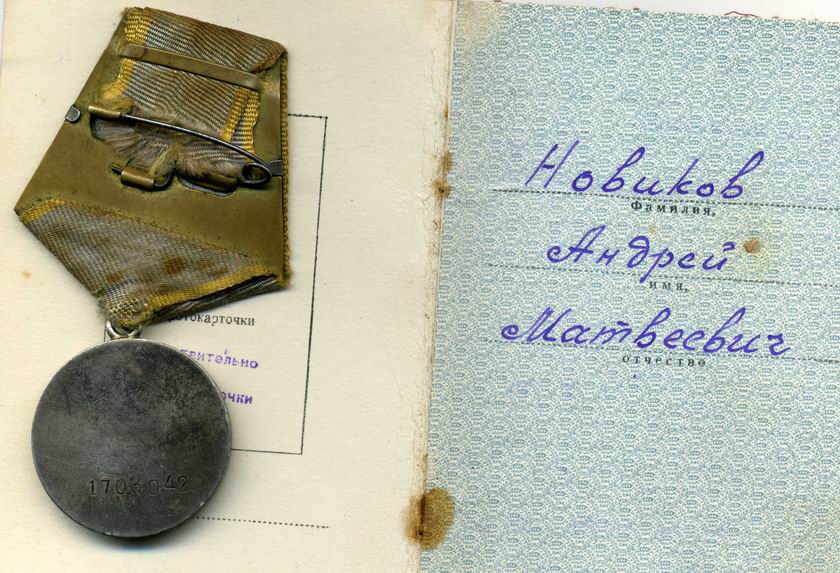 отокарточки
ительно
очки
1703042
Новиков
Фамилия,
Андрей
имя,
Матвеевич
отчество